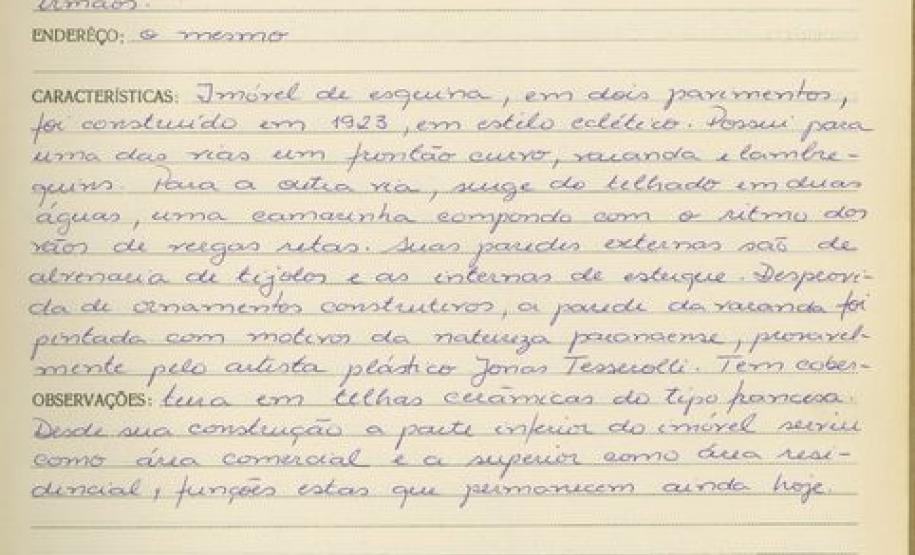 irmãos.
ENDERÊÇO: o mesmo
CARACTERÍSTICAS: Imóvel de esquina, em dois pavimentos,
foi construído em 1923, em estilo eclético. Possui para
uma das vias um frontão curvo, varanda e lambre-
quins. Para a outra via, surge do telhado em duas
águas, uma camarinha compondo com o ritmo dos
vãos de vergas retas. Suas paredes externas são de
alvenaria de tijolos e as internas de estuque. Desprovi-
da de ornamentos construtivos, a parede da varanda foi
pintada com motivos da natureza paranaense, provavel-
mente pelo artista plástico Jonas Tesserolli. Tem cober-
OBSERVAÇÕES: tura em telhas cerâmicas do tipo francesa.
Desde sua construção a parte inferior do imóvel serviu
como área comercial e a superior como área resi-
dencial, funções estas que permanecem ainda hoje.